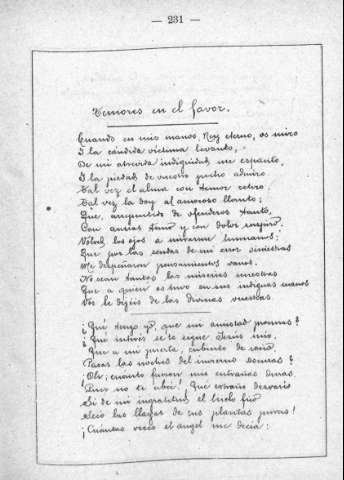 — 231 —
Temores en el favor.
Cuando en mis manos, Rey eterno, os miro
Y la cándida víctima levanto,
De mi atrevida indignidad me espanto,
Y la piedad de vuestro pecho admiro.
Tal vez el alma con temor retiro
Tal vez la doy al amoroso llanto;
Que, arrepentido de ofenderos tanto,
Con ansias temo y con dolor suspiro.
Volved los ojos a mirarme humanos;
Que por las sendas de mi error siniestras
Me despeñaron pensamientos vanos.
No sean tantas las miserias nuestras
Que a quien os tuvo en sus indignas manos
Vos le dejéis de las divinas vuestras.
¿Qué tengo yo, que mi amistad procuras?
¿Qué interés se te sigue, Jesús mío,
Que a mi puerta, cubierto de rocío,
Pasas las noches del invierno oscuras?
¡Oh; cuánto fueron mis entrañas duras
Pues no te abrí! ¡Qué extraño desvarío
Si de mi ingratitud el hielo frío
Secó las llagas de tus plantas puras!
¡Cuántas veces el ángel me decía: